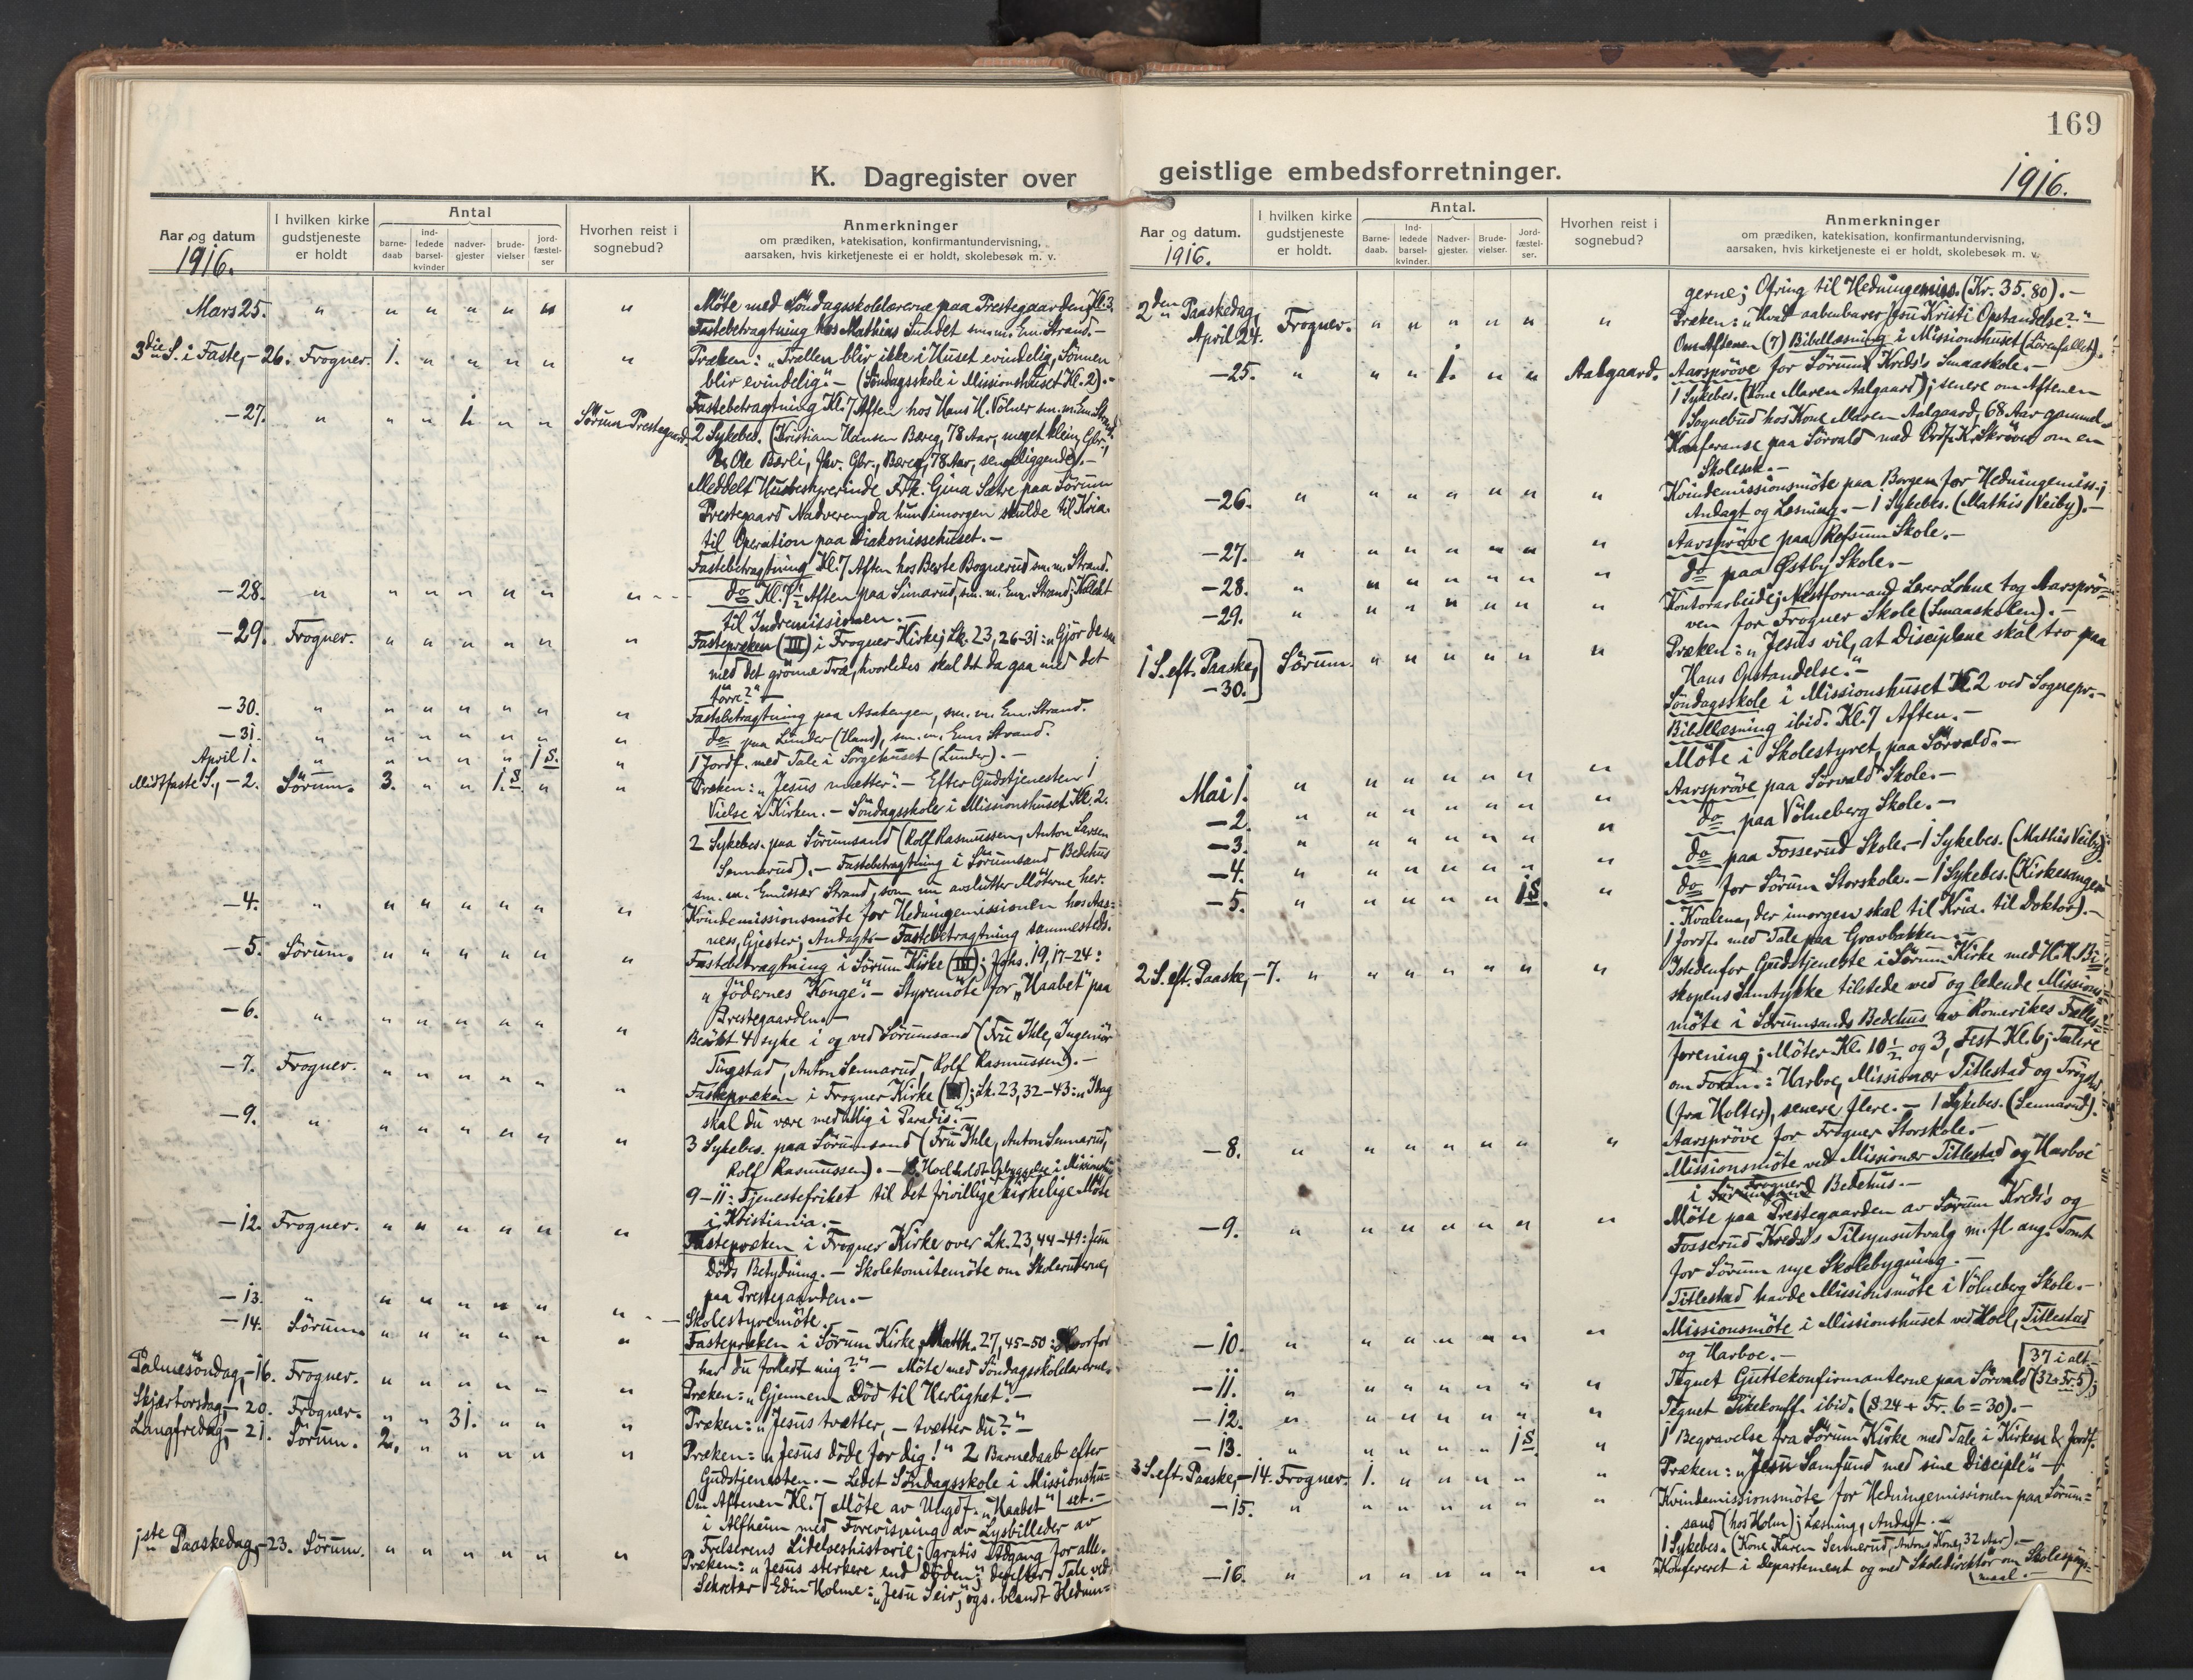 169
K. Dagregister over
geistlige embedsforretninger.
1916.
Aar og datum
1916.
I hvilken kirke
gudstjeneste
er holdt
Antal
barne-
daab
ind-
ledede
barsel-
kvinder
nadver-
gjester
brude-
vielser
jord-
fæstel-
ser
Hvorhen reist i
sognebud?
Anmerkninger
om prædiken, katekisation, konfirmantundervisning,
aarsaken, hvis kirketjeneste ei er holdt, skolebesøk m. v.
Mars 25. " " " " " " " Möte med Söndagsskolelærerne paa Prestegaarden Kl. 3.
Fastebetragtning hos Mathias Sundet smm. Em. Strand.—
3die S. i Faste, — 26. Frogner. 1. " " " " " Præken: "Trællen blir ikke i Huset evindelig, Sönnen
blir evindelig". — (Söndagsskole i Missionshuset Kl. 2). —
— 27. " " " 1. " " Sörum Prestegaard Fastebetragtning Kl. 7 Aften hos Hans H. Völner sm. m. Em. Strand.
2 Sykebes. (Kristian Hansen Bæreg, 78 Aar, meget klein, Gbr.,
Ole Bærli, fhv. Gbr., Bæreg, 78 Aar, sengeliggende). —
Meddelt Husbestyrerinde Frk. Gina Sætre paa Sörum
Prestegaard Nadveren, da hun imorgen skulde til Kria.
til Operation paa Diakonissehuset. —
Fastebetragtning Kl. 7 Aften hos Berte Bognerud sm. m. Strand.
— 28. " " " " " " " do Kl. 7½ Aften paa Simarud, sm. m. Em. Strand; Kollekt
til Indremissionen. —
— 29. Frogner. " " " " " " Fastepræken (III) i Frogner Kirke; Lk. 23, 26–31: "Gjör de saa
med det grönne Træ, hvorledes skal det da gaa med det
törre?" —
— 30. " " " " " " " Fastebetragtning paa Asakengen, sm. m. Em. Strand.
— 31. " " " " " " " do paa Lunder (Hans), sm. m. Em. Strand.
April 1. " " " " " 1 S. " 1 Jordf. med Tale i Sörgehuset (Lunder). —
Midtfaste S., — 2. Sörum. 3. " " 1. S. " " Præken: "Jesus mætter". — Efter Gudstjenesten 1
Vielse i Kirken. — Söndagsskole i Missionshuset Kl. 2.
2 Sykebes. paa Sörumsand (Rolf Rasmussen, Anton Larsen
Sennerud). — Fastebetragtning i Sörumsand Bedehus
sm. m. Emissær Strand, som nu avslutter Möterne her.
— 4. " " " " " " " Kvindemissionsmöte for Hedningemissionen hos Aas=
ness, Gjester; Andagt. — Fastebetragtning sammesteds.
— 5. Sörum. " " " " " " Fastebetragtning i Sörum Kirke (III); Johs. 19, 17–24:
"Jödernes Konge". — Styremöte for "Haabet" paa
Prestegaarden. —
— 6. " " " " " " " Besökt 4 syke i og ved Sörumsand (Fru Ihle, Ingeniör
Tingstad, Anton Sennarud, Rolf Rasmussen). —
— 7. Frogner. " " " " " " Fastepræken i Frogner Kirke; Lk. 23, 32–43: "Idag
skal du være med mig i Paradis". —
— 9. " " " " " " " 3 Sykebes. paa Sörumsand (Fru Ihle, Anton Sennarud,
Rolf Rasmussen). — Hoel holdt Opbyggelse i Missionshus.
9–11: Tjenestefrihet til det frivillige kirkelige Möte
i Kristiania. —
— 12. Frogner. " " " " " " Fastepræken i Frogner Kirke over Lk. 23, 44–49: Jesu
Döds Betydning. — Skolekomitemöte om Skoleruterne,
paa Prestegaarden. —
— 13. " " " " " " " Skolestyremöte.
— 14. Sörum. " " " " " " Fastepræken i Sörum Kirke, Matth. 27, 45–50: Hvorfor
har du forladt mig?" — Möte med Söndagsskolelærerne.
Palmesöndag, — 16. Frogner. " " " " " " Præken: "Gjennem Död til Herlighet". —
Skjærtorsdag, — 20. Frogner. " " 31. " " " Præken: "Jesus tvætter, — tvætter du?" —
Langfredag, — 21. Sörum. 2. " " " " " Præken: "Jesus döde for dig!" 2 Barnedaab efter
Gudstjenesten. — Ledet Söndagsskole i Missionshu=
set. —
Om Aftenen Kl. 7 Möte av Ungdf. "Haabet"
i Alfheim med Forevisning av Lysbilleder av
Frelserens Lidelseshistorie; gratis Adgang for alle.
1ste Paaskedag, — 23. Sörum. " " " " " " Præken: "Jesus sterkere end Döden"; derefter Tale ved
Sekretær Edin Holme: "Jesu Seir", ogs. blandt Hednin=
Aar og datum.
1916.
I hvilken kirke
gudstjeneste
er holdt.
Antal.
Barne-
daab.
Ind-
ledede
barsel-
kvinder.
Nadver-
gjester.
Brude-
vielser.
Jord-
fæstel-
ser.
Hvorhen reist i
sognebud?
Anmerkninger
om prædiken, katekisation, konfirmantundervisning,
aarsaken, hvis kirketjeneste ei er holdt, skolebesøk m. v.
gerne; Ofring til Hedningemiss. (Kr. 35.80). —
2den Paaskedag,
April 24. Frogner. " " " " " " Præken: "Hvad aabenbarer Jesu Kristi Opstandelse?" —
Om Aftenen (7) Bibellæsning i Missionshuset (Lörenfallet).
— 25. " " " 1. " " Aalgaard. Aarspröve for Sörum Kreds's Smaaskole. —
1 Sykebes. (Kone Maren Aalgaard); senere om Aftenen
Sognebud hos Kone Maren Aalgaard, 68 Aar gammel.
Konferanse paa Sörvald med Ordf. K. Skröver om en
Skolesak. —
— 26. " " " " " " " Kvindemissionsmöte paa Borgen for Hedningemiss.;
Andagt og Læsning. — 1 Sykebes. (Mathis Veiby). —
— 27. " " " " " " " Aarspröve paa Refsum Skole. —
— 28. " " " " " " " do paa Østby Skole. —
— 29. " " " " " " " Kontorarbeide; Næstformand Lærer Lohne tog Aarsprö=
ven for Frogner Skole (Smaaskolen). —
1 S. eft. Paaske,
— 30. Sörum. " " " " " " Præken: "Jesus vil, at Disciplene skal tro paa
Hans Opstandelse." —
Söndagsskole i Missionshuset Kl. 2 ved Sognepr. —
Bibellæsning ibid. Kl. 7 Aften. —
Mai 1. " " " " " " " Möte i Skolestyret, paa Sörvald. —
— 2. " " " " " " " Aarspröve paa Sörvald Skole. —
— 3. " " " " " " " do paa Völneberg Skole. —
— 4. " " " " " " " do paa Fosserud Skole. — 1 Sykebes. (Mathis Veiby).
— 5. " " " " " 1 S. " do for Sörum Storskole. — 1 Sykebes. (Kirkesanger
Kvalene, der imorgen skal til Kria. til Doktor). —
1 Jordf. med Tale paa Gravbakken. —
2 S. eft. Paaske, — 7. " " " " " " " Istedenfor Gudstjeneste i Sörum Kirke med H. H. Bi=
skopens Samtykke tilstede ved og ledende Missions=
möte i Sörumsands Bedehus av Romerikes Fælles=
forening; Möter Kl. 10½ og 3, Fest Kl. 6; Talere
om Form.: Harboe, Missionær Titlestad og
(fra Holter), senere flere. — 1 Sykebes. (Sennarud).
— 8. " " " " " " " Aarspröve for Frogner Storskole. —
Missionsmöte ved Missionær Titlestad og Harboe
i Frogner Bedehus. —
— 9. " " " " " " " Möte paa Prestegaarden av Sörum Kreds's og
Fosserud Kreds's Tilsynsutvalg m. fl. ang. Tomt
for Sörum nye Skolebygning. —
Titlestad havde Missionsmöte i Völneberg Skole. —
— 10. " " " " " " " Missionsmöte i Missionshuset ved Hoel, Titlestad
og Harboe. —
37 i alt
— 11. " " " " " " " Tegnet Guttekonfirmanterne paa Sörvald (32 + Fr. 5);
— 12. " " " " " " " Tegnet Pikekonff. ibid. (S. 24 + Fr. 6 = 30). —
— 13. " " " " " 1 S. " 1 Begravelse fra Sörum Kirke med Tale i Kirken & Jordf.
3 S. eft. Paaske, — 14. Frogner. 1. " " " " " Præken: "Jesu Samfund med sine Disciple". —
— 15. " " " " " " " Kvindemissionsmöte for Hedningemissionen paa Sörum=
sand (hos Holm); Læsning, Andagt. —
1 Sykebes. (Kone Karen Sennerud, Antons Kone, 32 Aar). —
— 16. " " " " " " " Konfereret i Departement og ved Skoledirektör om Skolespörgs=
maal. —